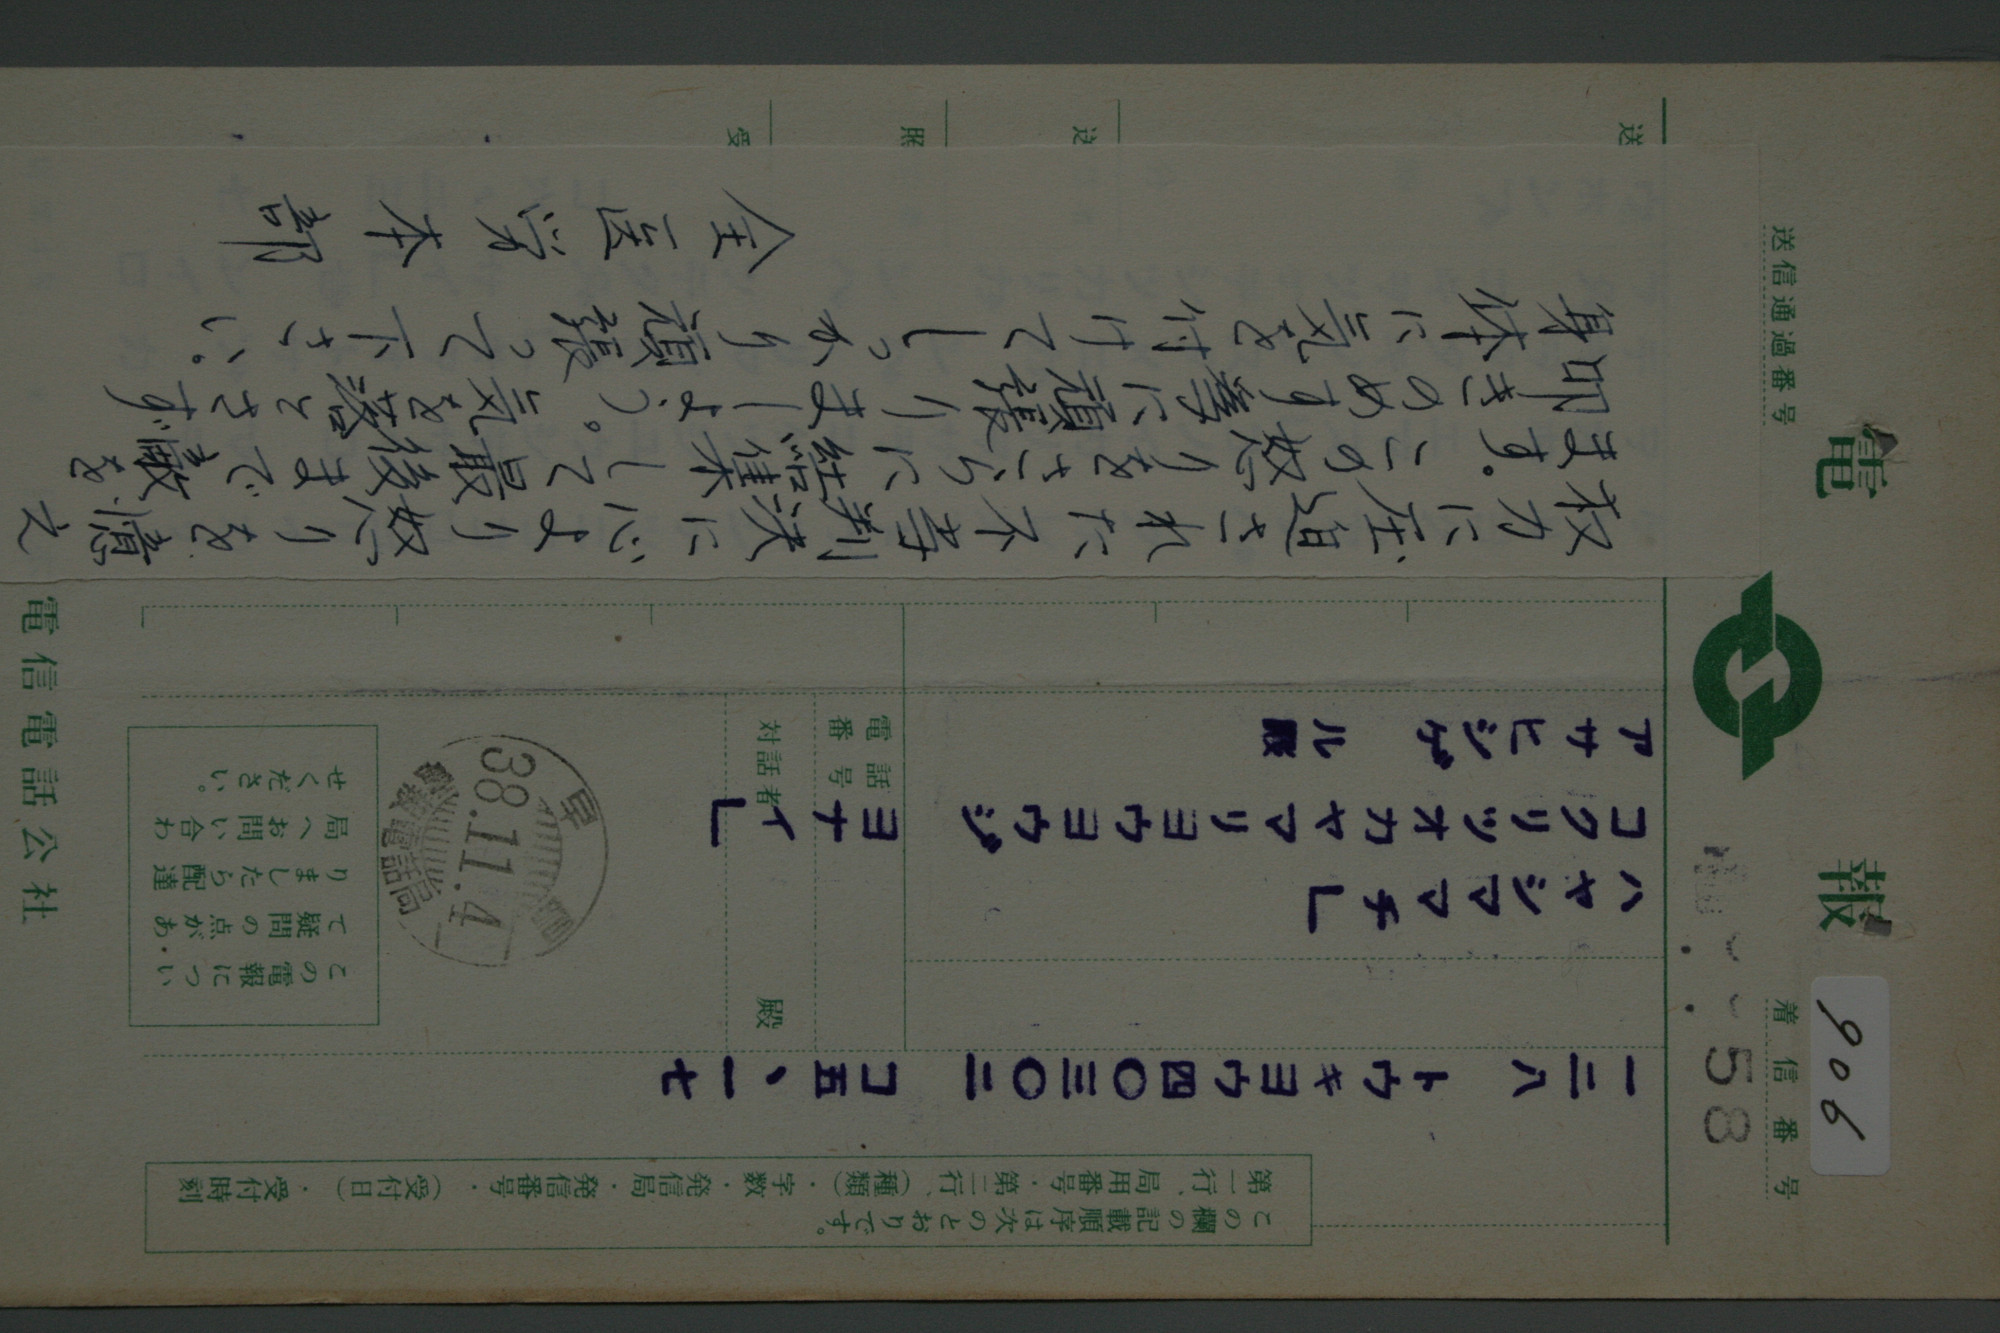 電報
着信番号
送信通過番号
906
58
この欄の記載順序は次のとおりです。
第一行、局用番号・第二行、（種類）・字数・発信局・発信番号・（受付日）・受付時刻
一二八 トウキヨウ四〇三〇二 コ五、一七
ハヤシマチ」
コクリツオカヤマリヨウヨウジヨナイ」
アサヒシゲル殿
電話番号
対話者 殿
38.11.4
電報電話局
この電報につい
て疑問の点があ
りましたら配達
局へお問い合わ
せください。
電信電話公社
送
送
照
受
权力に圧迫された不等判決に心より怒りを憶え
ます。この怒りをさらに結集して最後まで敵を
叩きのめす等に頑張りましょう。気を落とさず
身体に気を付けてしっかり頑張って下さい。
全医学本部